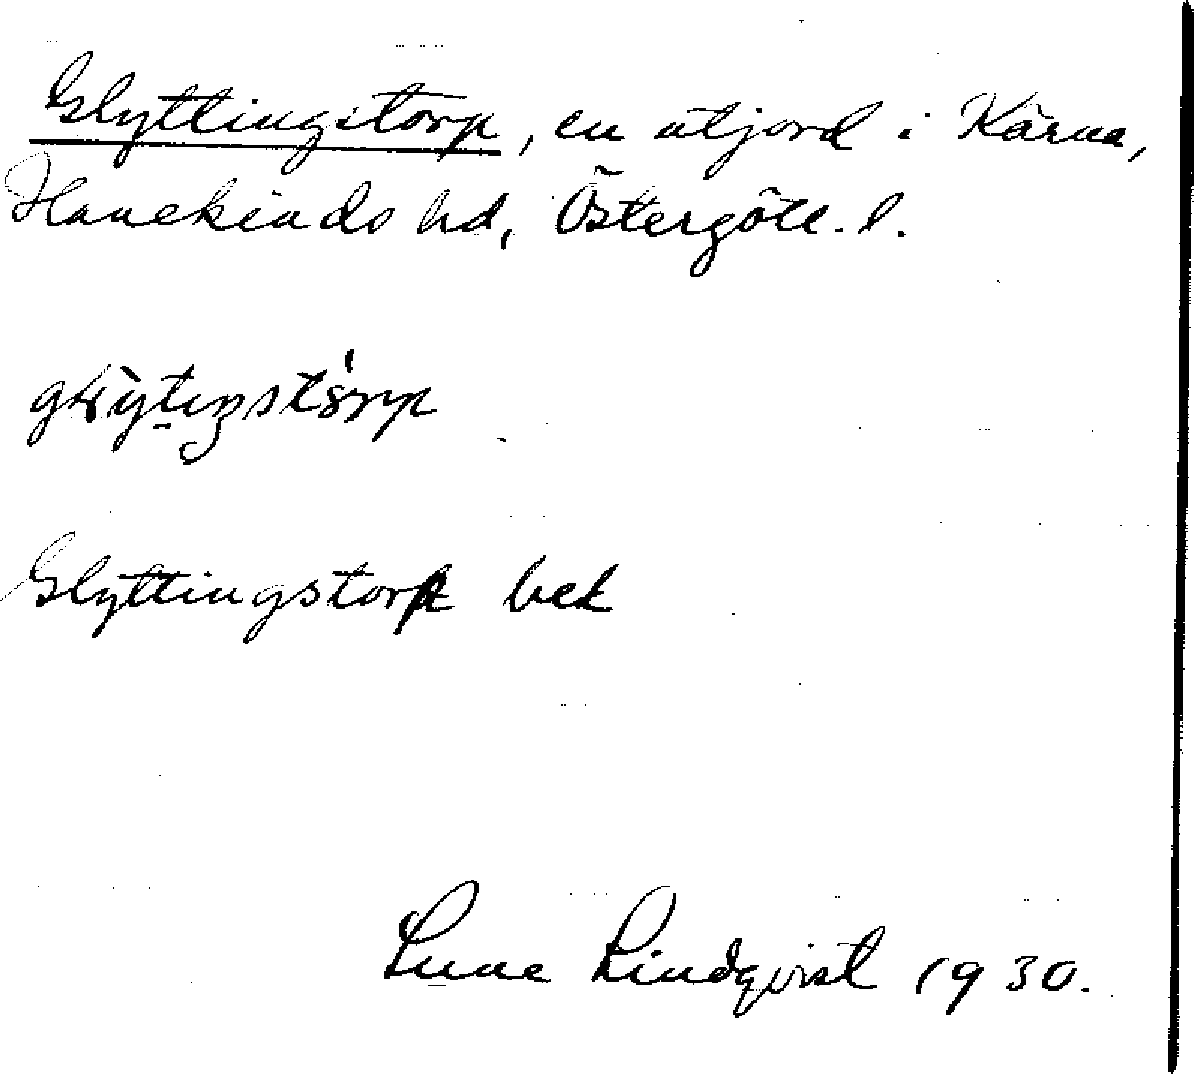 Glyttingstorp, en utjord i Kärna,
Hanekinds hd, Östergötl. l.
Glyttingstorp bek
Sune Lindqvist 1930.